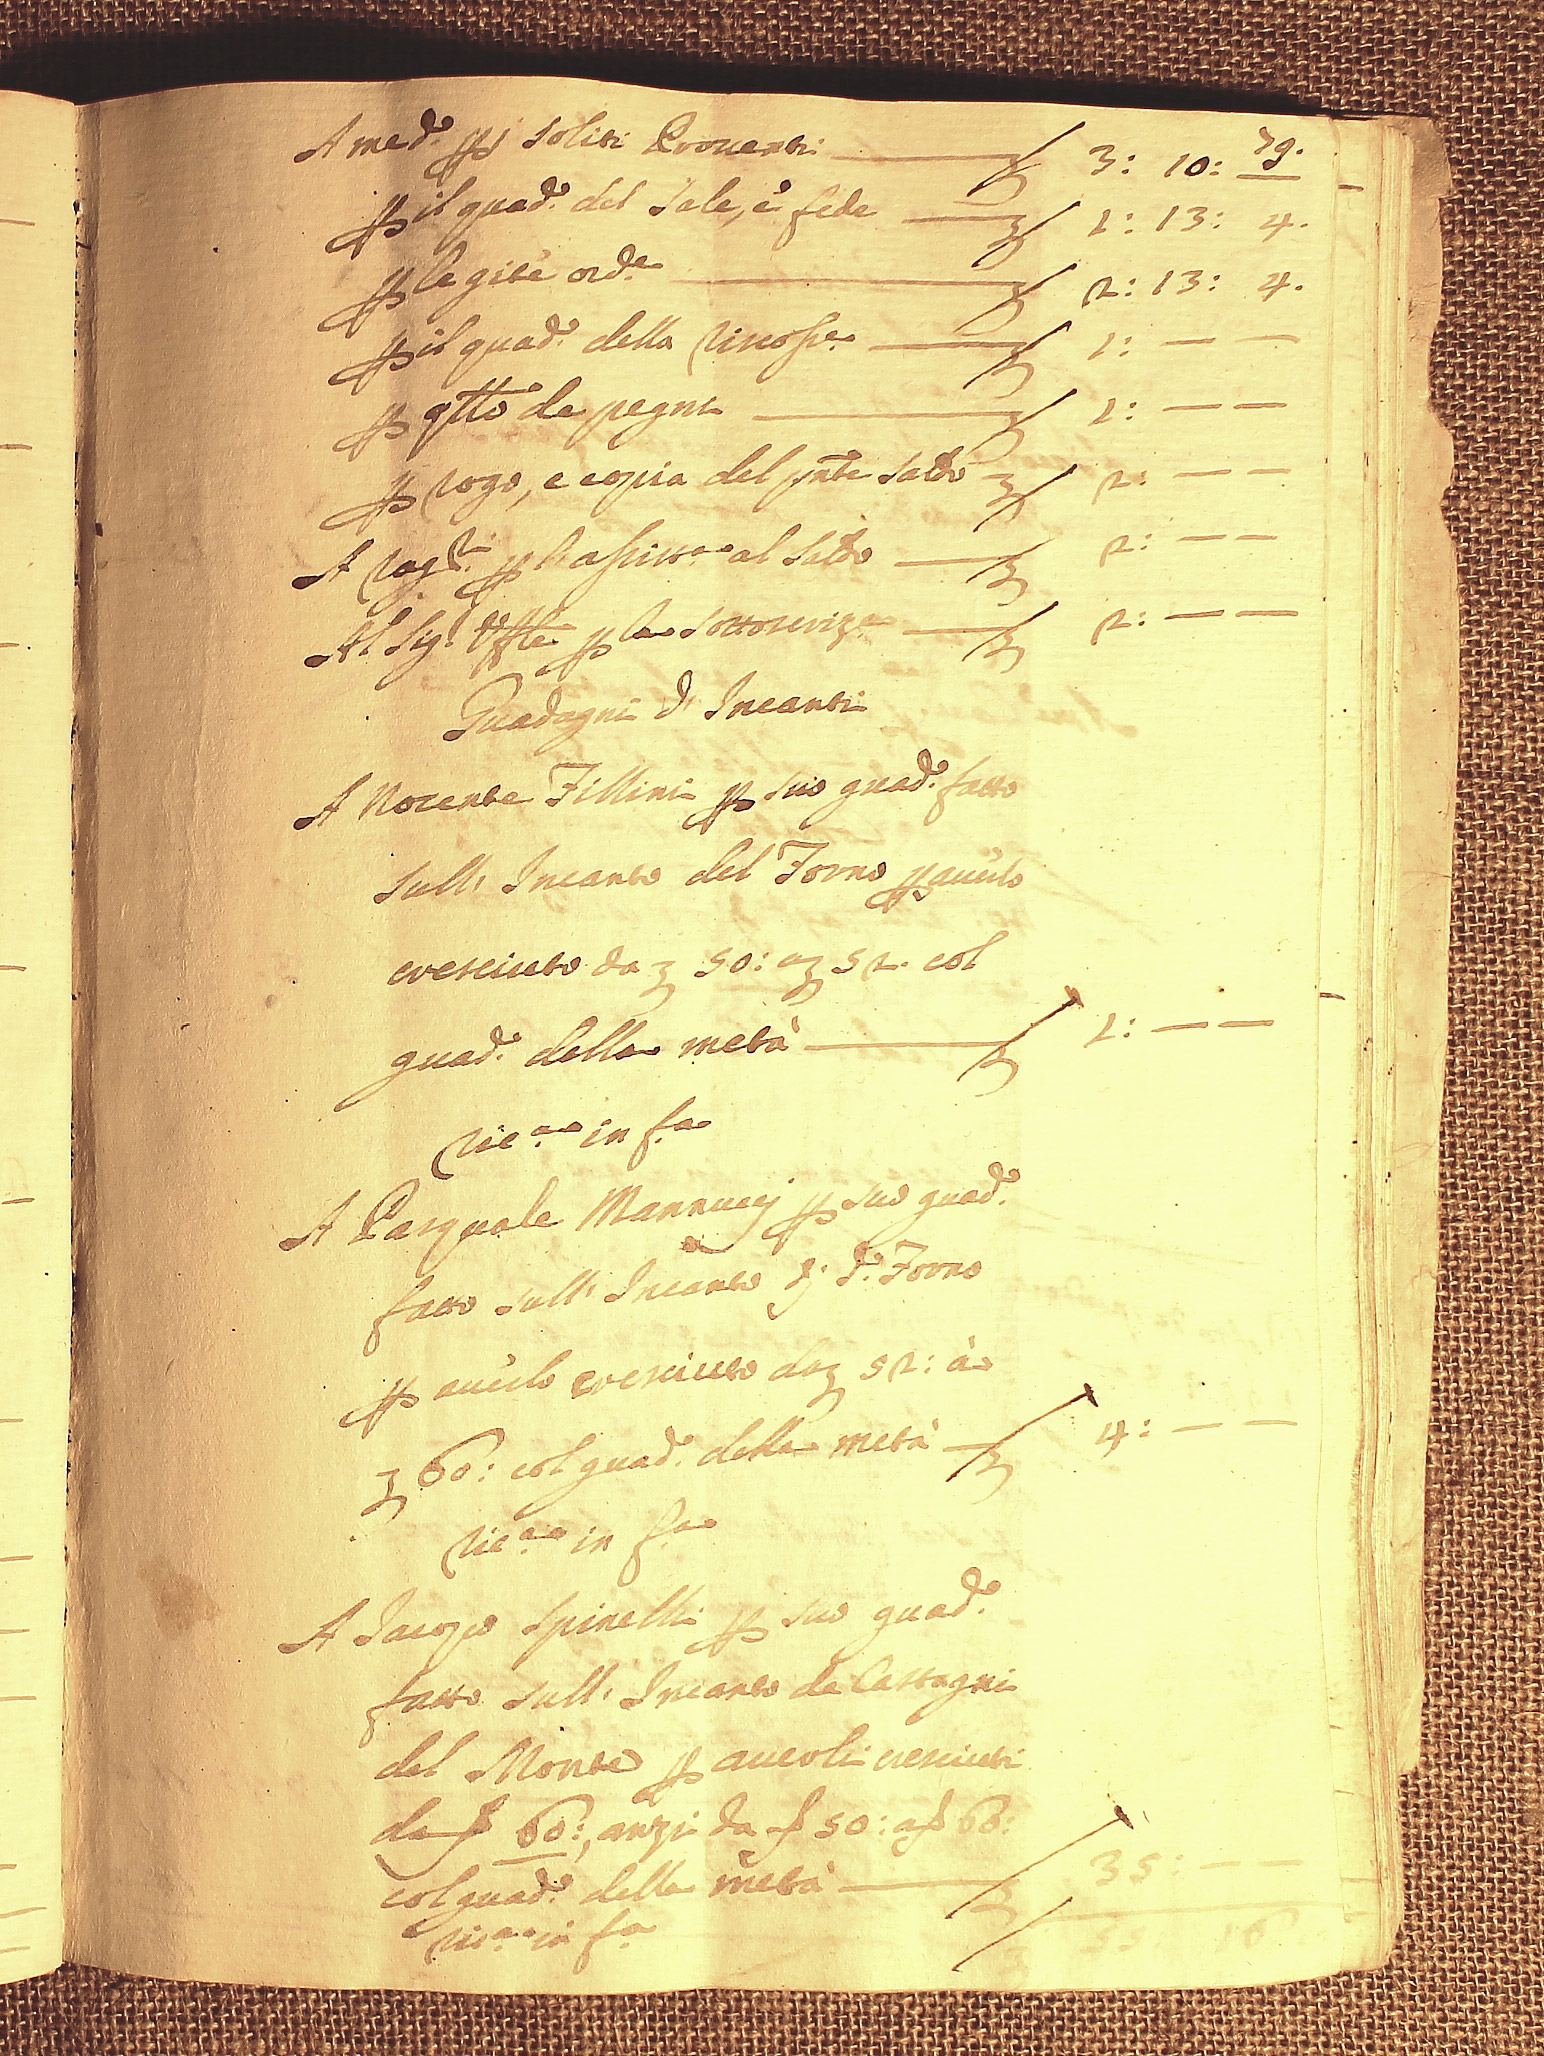 A med.o p i soliti Proventi 3: 10: 
p il quad.o del Sale, è fede 1: 13: 4.
p le gite ord.e 2: 13: 4.
p il quad.o della 1: — —
p de pegni 1: — —
p rogo, e copia del pnte saldo 2: — —
A p al saldo 2: — —
Al Sig.r p la 2: — —
Guadagni d' Incanti
A Nocente Fillini p suo guad.o fatto
sull' Incanto del Forno p auerlo
cresciuto da 50: a 52. col
guad.o della metà 1: — —
in f.a
A Pasquale Mannucci p suo guad.o
fatto sull' Incanto di d.o Forno
p auerlo cresciuto da 52: à
60: col guad.o della metà 4: — —
in f.a
A Iacopo Spinelli p suo guad.o
fatto sull' Incanto de Castagni
del Monte p auerli cresciuti
da 60:, anzi da 50: a
col guad.o della metà 35: — —
in f.a 55 16